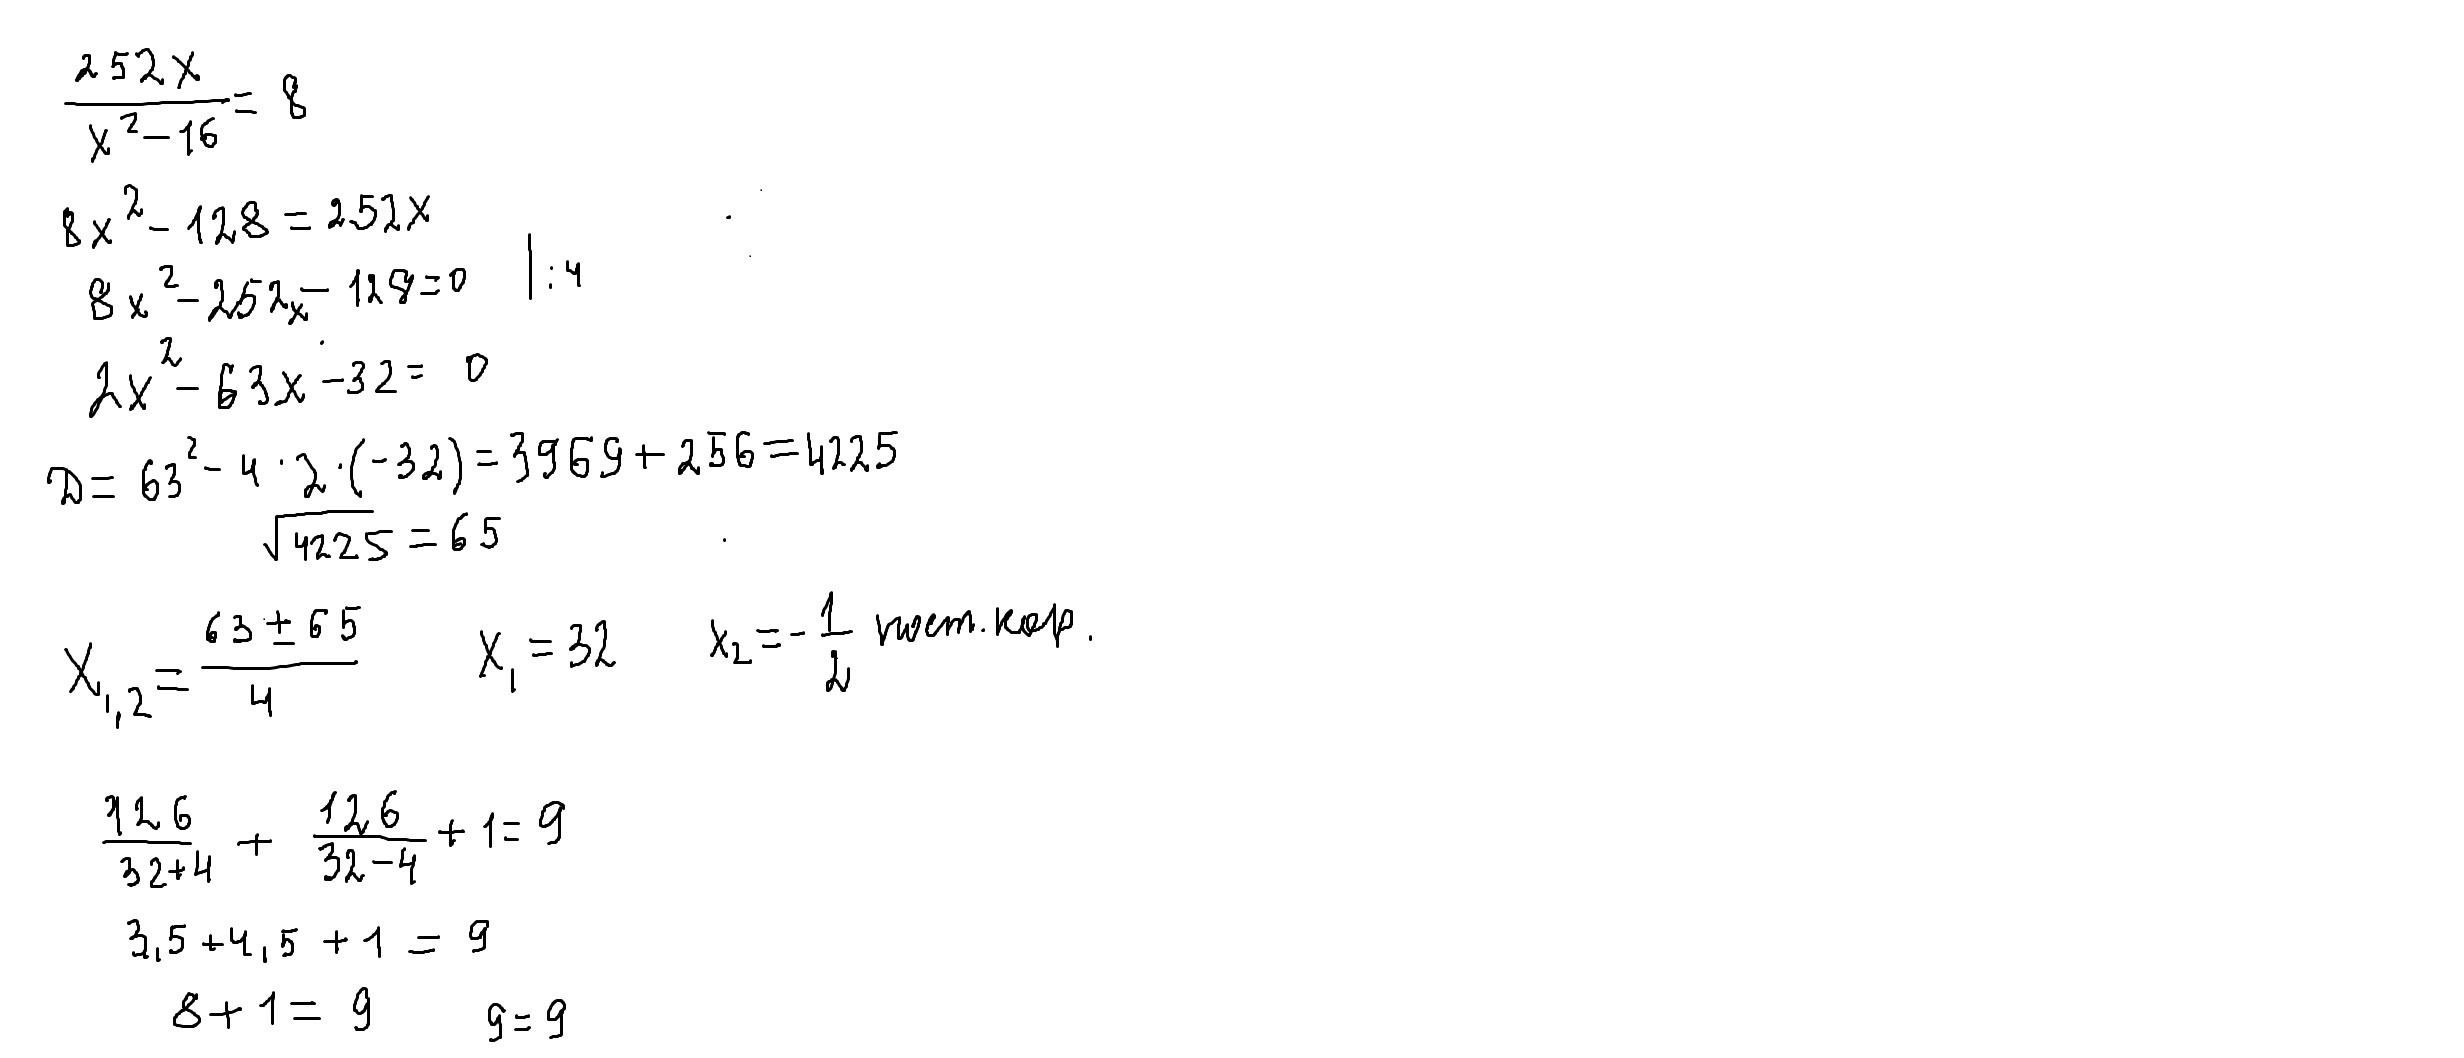 252x / (x² – 16) = 8
8x² – 128 = 252x
8x² – 252x – 128 = 0 | : 4
2x² – 63x – 32 = 0
D = 63² – 4 · 2 · (–32) = 3969 + 256 = 4225
√4225 = 65
x₁,₂ = (63 ± 65) / 4   x₁ = 32   x₂ = – 1/2 пост. кор.
126 / (32+4) + 126 / (32–4) + 1 = 9
3,5 + 4,5 + 1 = 9
8 + 1 = 9   9 = 9